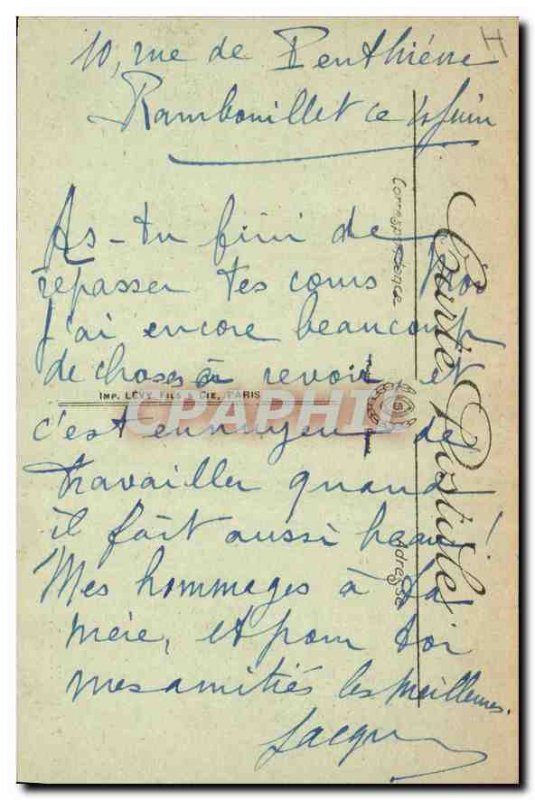 H
10, rue de Penthièvre
Rambouillet ce 4 Juin
As-tu fini de
repasser tes cours Moi
j'ai encore beaucoup
de choses à revoir et
c'est ennuyeux de
travailler quand
il fait aussi beau!
Mes hommages à ta
mère, et pour toi
mes amitiés les meilleures.
Jacques
Carte Postale
Correspondance
Adresse
IMP. LÉVY FILS & CIE, PARIS
CPAPHIL